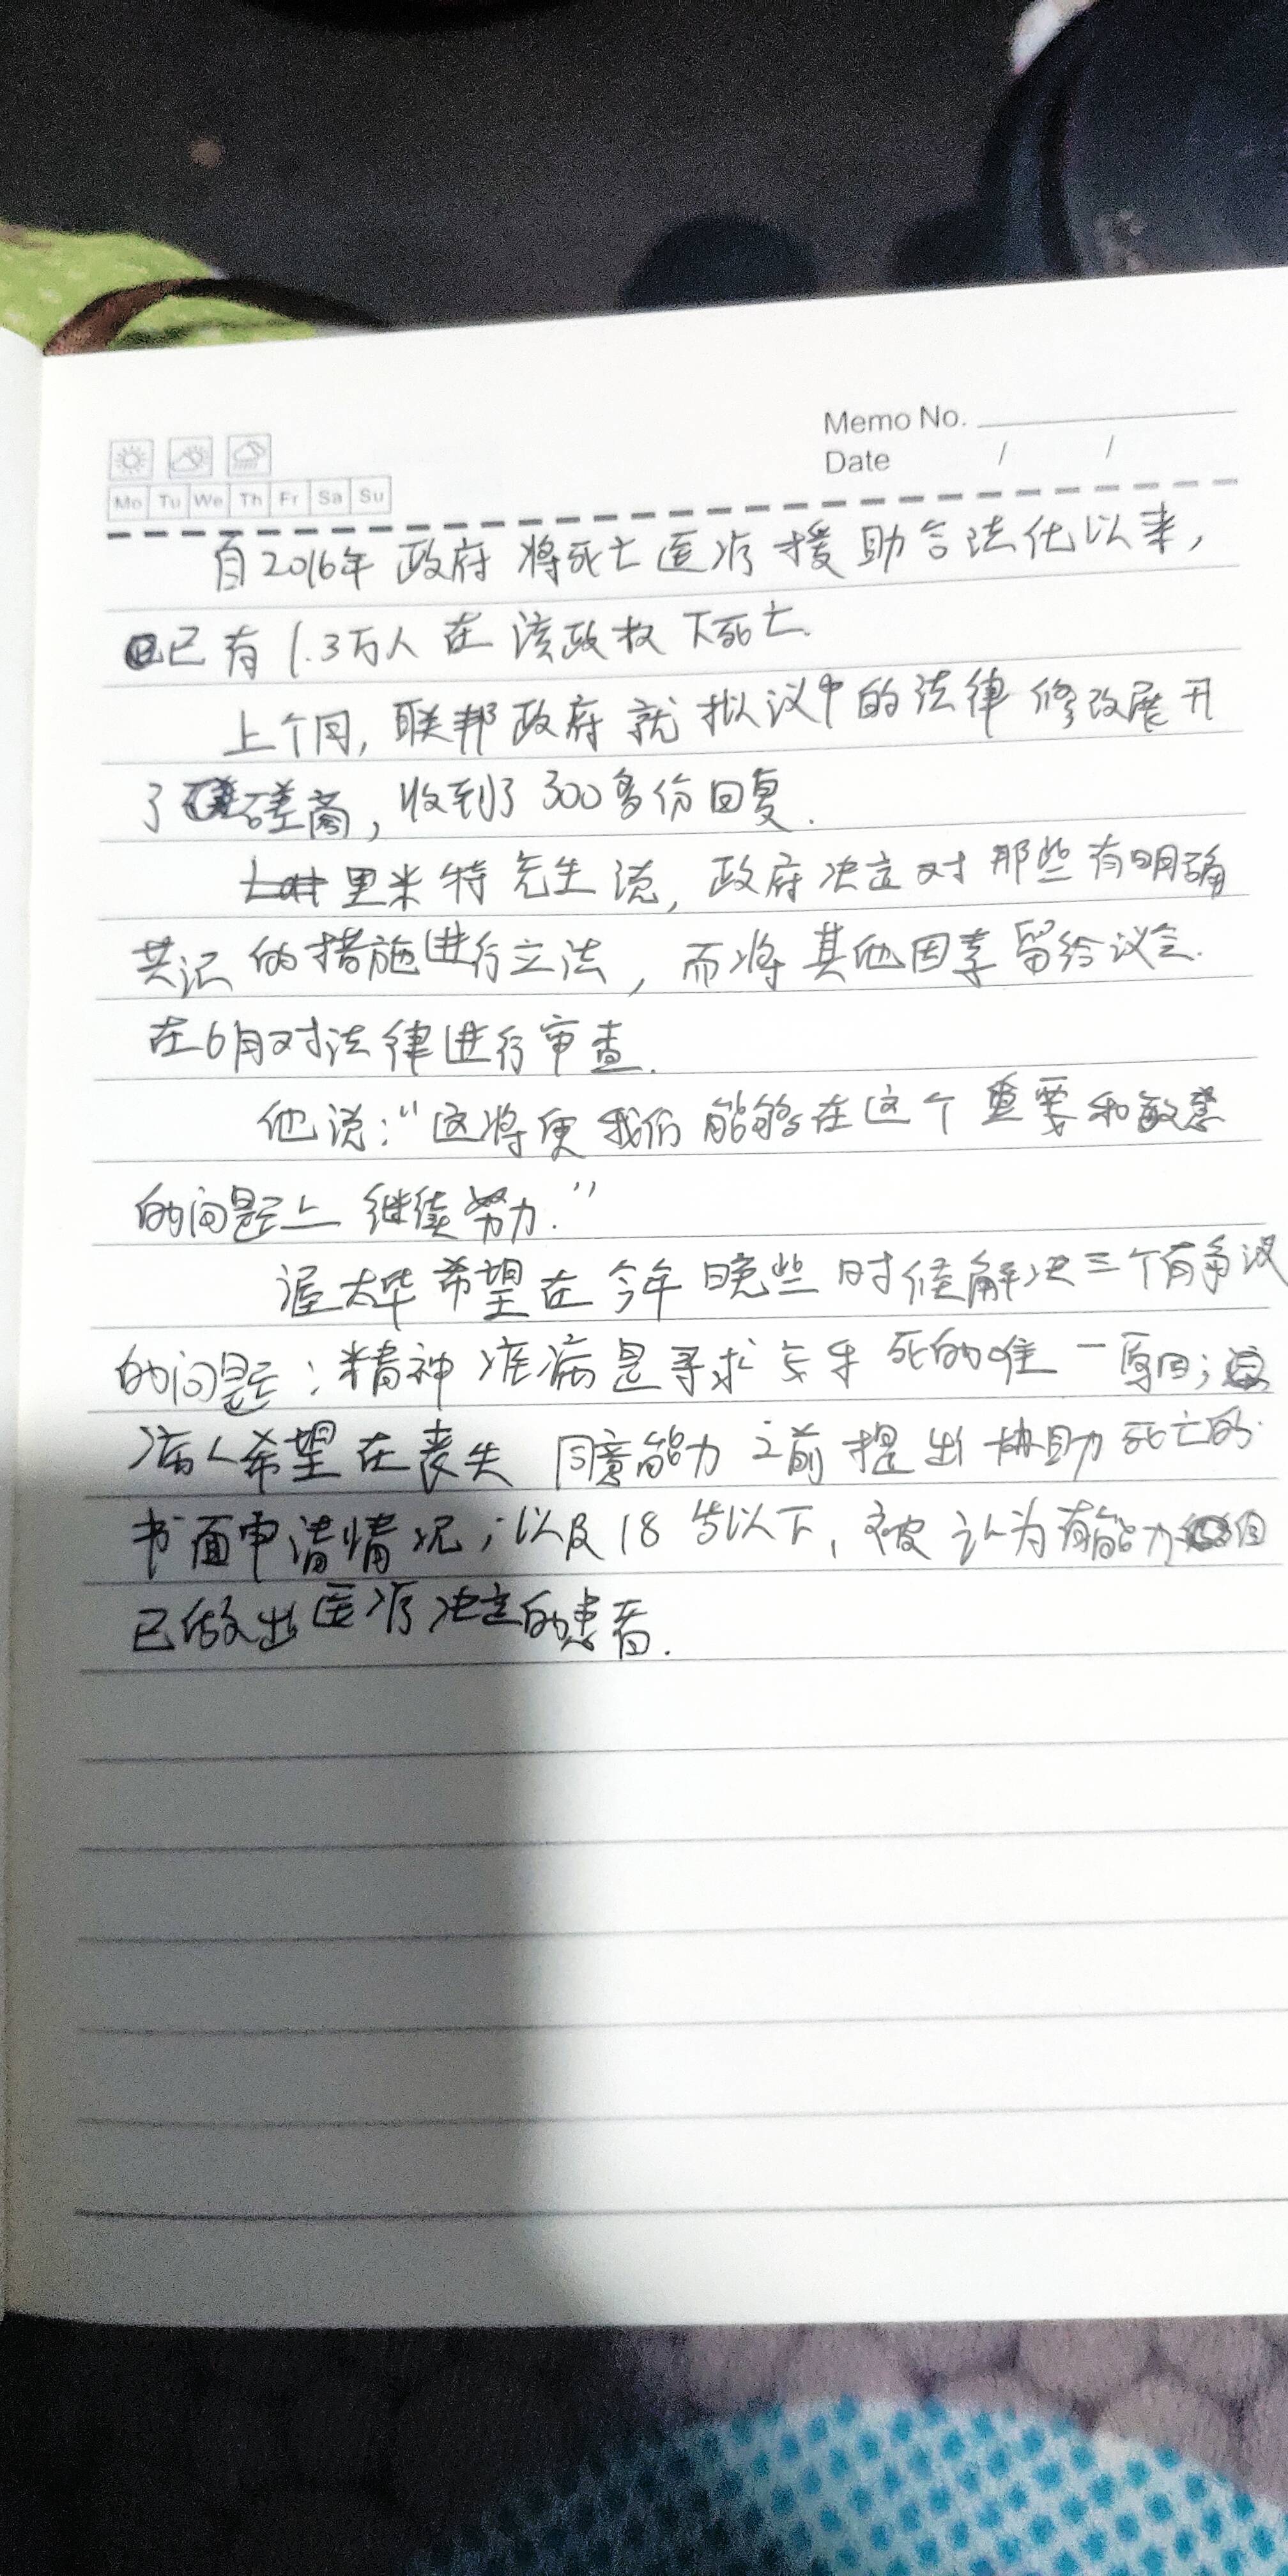 Memo No.
Date / /
Mo Tu We Th Fr Sa Su
自2016年政府将死亡医疗援助合法化以来,
已有1.3万人在该政权下死亡.
上个月,联邦政府就拟议中的法律修改展开
了磋商,收到了300多份回复.
里米特先生说,政府决定对那些有明确
共识的措施进行立法,而将其他因素留给议会.
在6月对法律进行审查.
他说:“这将使我们能够在这个重要和敏感
的问题上继续努力.”
渥太华希望在今年晚些时候解决三个有争议
的问题:精神疾病是寻求安乐死的唯一原因;
病人希望在丧失同意能力之前提出协助死亡的
书面申请情况;以及18岁以下,被认为有能力自
已做出医疗决定的患者.